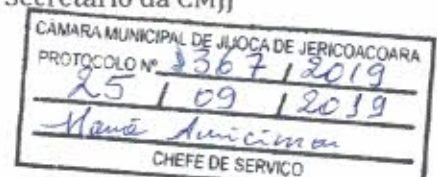 Secretário da CMJJ
CÂMARA MUNICIPAL DE JIJOCA DE JERICOACOARA
PROTOCOLO Nº 1367 / 2019
25 / 09 / 2019
CHEFE DE SERVIÇO